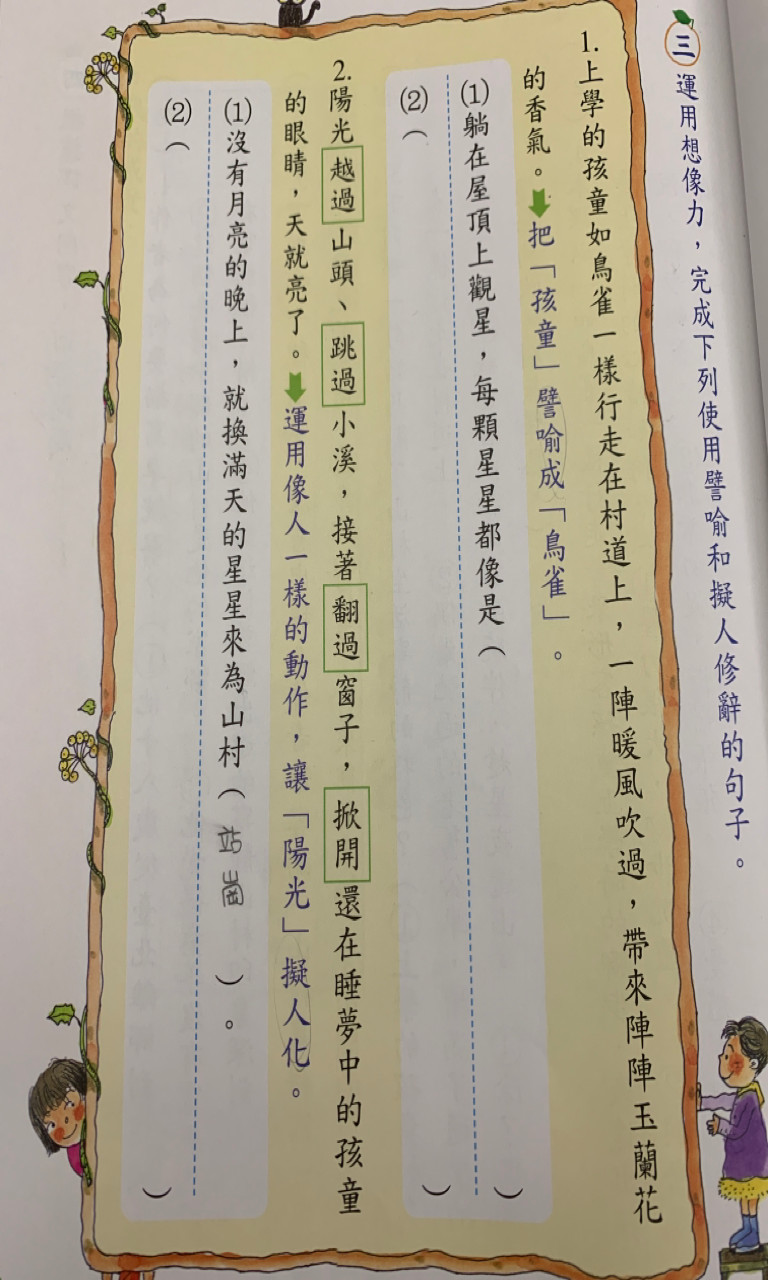 三 運用想像力，完成下列使用譬喻和擬人修辭的句子。
1.上學的孩童如鳥雀一樣行走在村道上，一陣暖風吹過，帶來陣陣玉蘭花
的香氣。把「孩童」譬喻成「鳥雀」。
(1)躺在屋頂上觀星，每顆星星都像是（ ）
(2)（ ）
2.陽光越過山頭、跳過小溪，接著翻過窗子，掀開還在睡夢中的孩童
的眼睛，天就亮了。運用像人一樣的動作，讓「陽光」擬人化。
(1)沒有月亮的晚上，就換滿天的星星來為山村（站崗）。
(2)（ ）